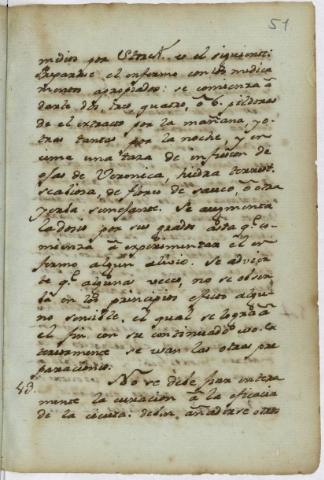 51
medico por Störck. es el siguiente:
Preparase el enfermo con los medica
mentos apropiados: se comienza â
darle dos, tres, quatro, ô 6. pildoras
de el extracto por la mañana, y o-
tras tantas por la noche, y en
cima una taza de infusion de
ojas de Veronica, hiedra terrest.
scabiosa, de flores de sauco, ô otra
yerba semejante. Se augmenta
la dosis por sus grados asta q.e co-
mienza â experimentar el en-
fermo algun alivio. Se advier
te q.e algunas veces, no se obser
ba en los principios efecto algu-
no sensible, el qual se logra â
el fin con su continuado uso. Ex
teriormente se usan las otras pre
paraciones.
43. No se debe fiar entera
mente la curacion â la eficacia
de la cicuta: deben añadirse otros